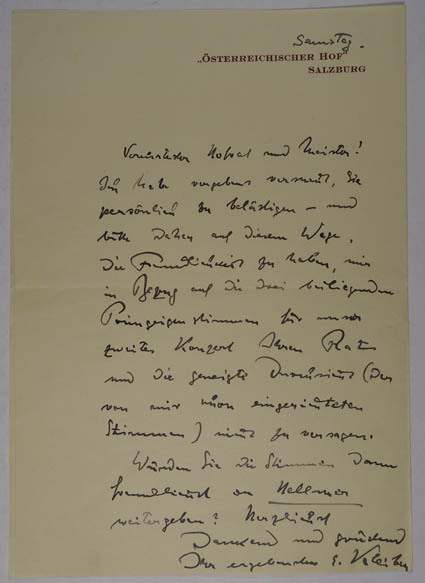 Samstag.
„ÖSTERREICHISCHER HOF“
SALZBURG
Verehrtester Hofrat und Meister!
Ich habe vergebens versucht, Sie
persönlich zu belästigen – und
bitte daher auf diesem Wege,
die Freundlichkeit zu haben, mir
in Bezug auf die drei beiliegenden
Prinzgeigenstimmen für unser
zweites Konzert Ihren Rat
und die geneigte Durchsicht (der
von mir schon eingerichteten
Stimmen) nicht zu versagen.
Würden Sie die Stimmen dann
freundlichst an Hellmer
weitergeben? Herzlichst
Dankend und grüßend
Ihr ergebenster E. Kleiber